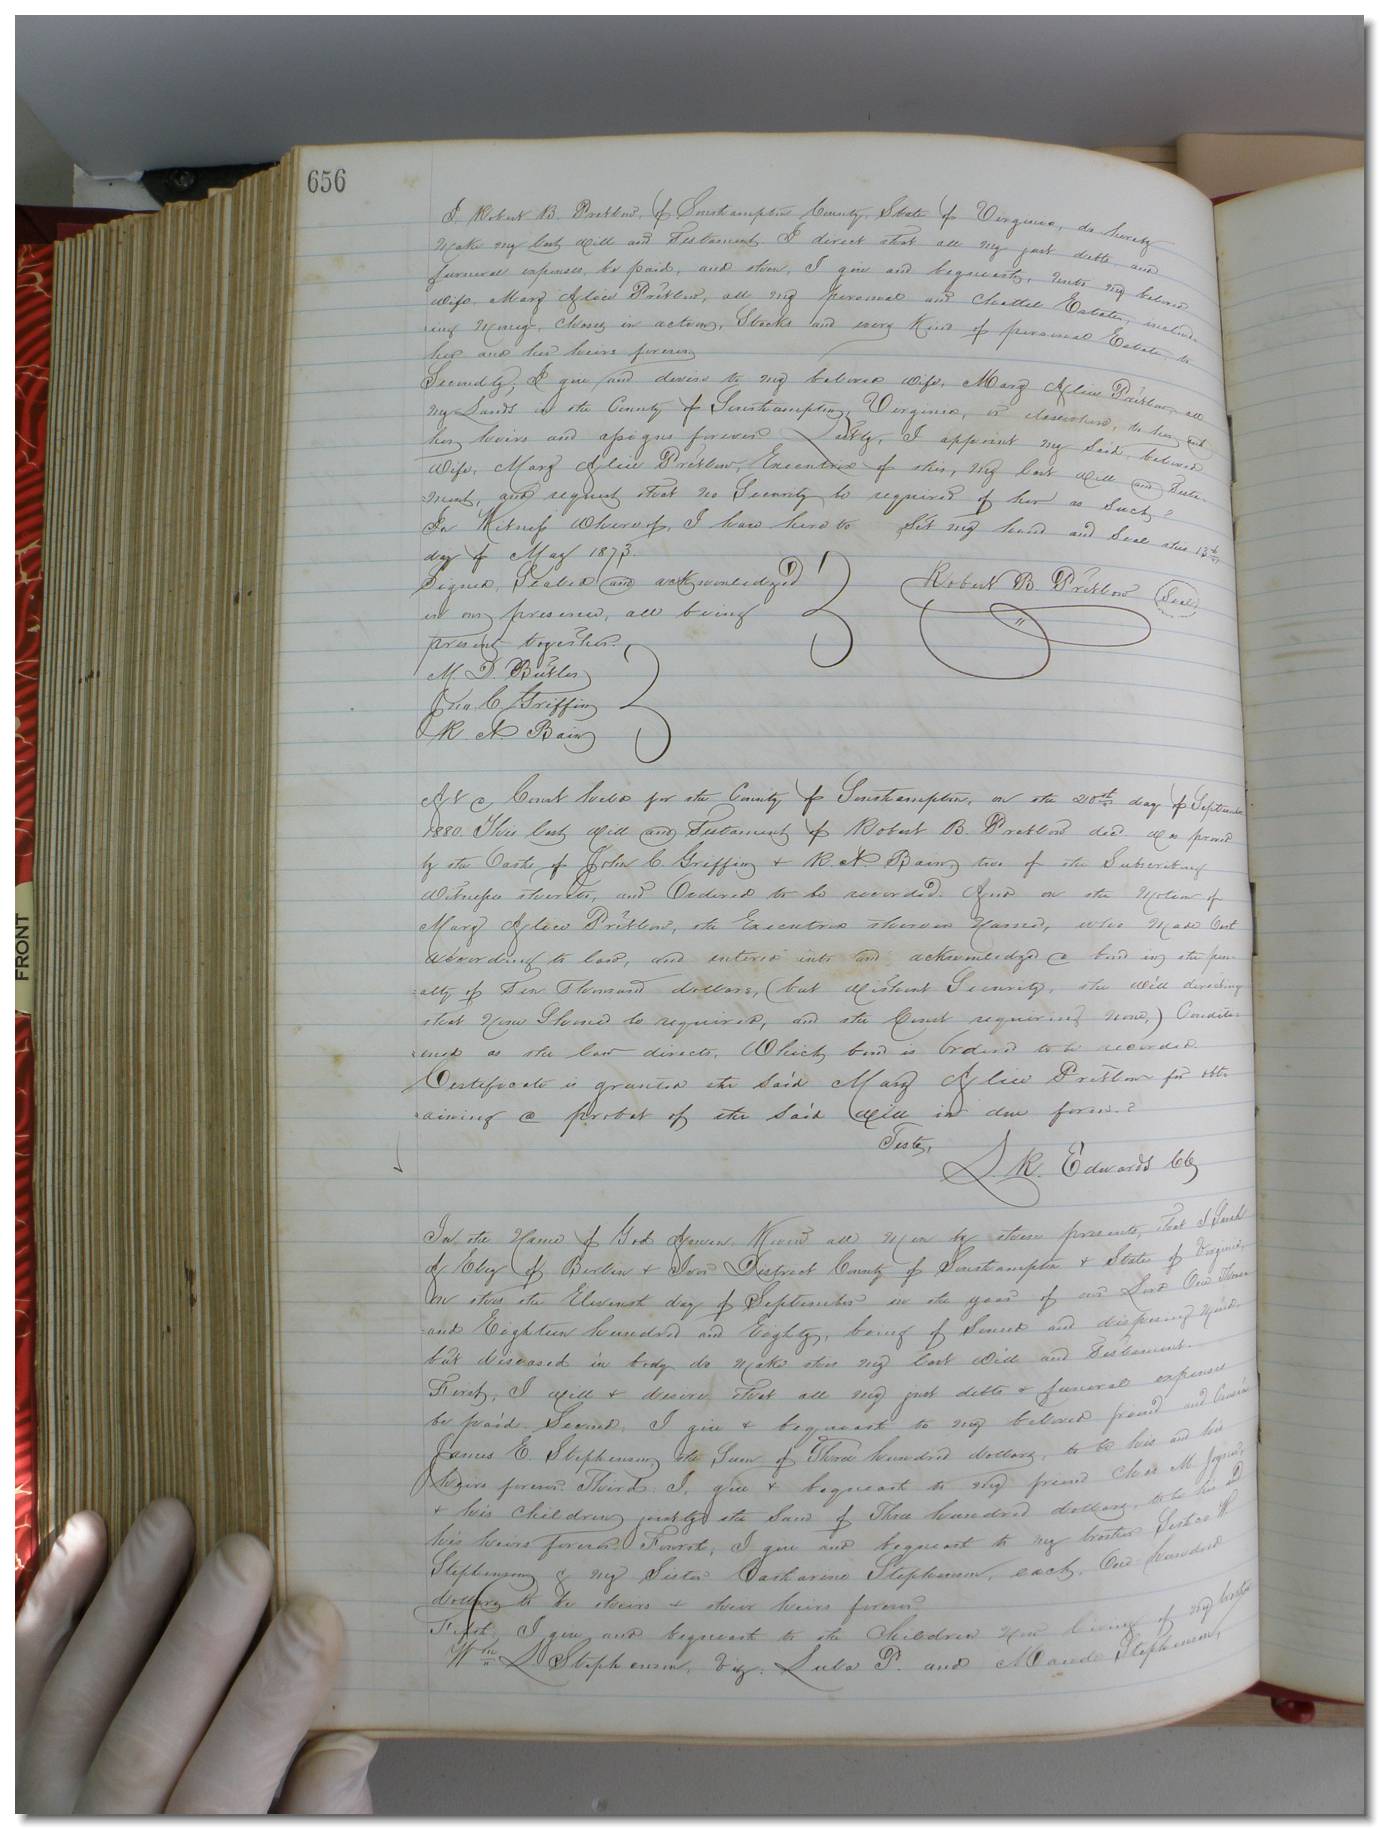 656
I, Robert B. Pretlow, of Southampton County, State of Virginia, do hereby
make my last Will and Testament. I direct that all my just debts and
funeral expenses, be paid, and then, I give and bequeath, unto my beloved
wife, Mary Alice Pretlow, all my personal and Chattel Estate, includ-
ing Money, Choses in action, Stocks and every Kind of personal Estate, to
her and her heirs forever
Secondly, I give and devise to my beloved wife, Mary Alice Pretlow, all
my Lands in the County of Southampton, Virginia, or elsewhere, to her and
her heirs and assigns forever Lastly, I appoint my said, beloved
wife, Mary Alice Pretlow, Executrix of this, my last Will and Testa-
ment, and request that no Security be required of her as Such.
In Witness Whereof, I have here to Set my hand and Seal this 13th
day of May 1873.
Signed, Sealed and acknowledged
in our presence, all being
present together.
Robert B. Pretlow Seal
M. D. Butler
Jno. C. Griffin
R. A. Bain
At a Court held for the County of Southampton, on the 20th day of September
1880. This last Will and Testament of Robert B. Pretlow dec. was proved
by the Oaths of John C. Griffin & R. A. Bain, two of the Subscribing
Witnesses thereto, and Ordered to be recorded. And on the Motion of
Mary Alice Pretlow, the Executrix therein Named, who Made Oath
according to law, and entered into and acknowledged a bond in the pen-
alty of Ten Thousand dollars, (but without Security, the Will directing
that None Should be required, and the Court requiring none,) Condition-
ened as the law directs, Which bond is Ordered to be recorded.
Certificate is granted the Said Mary Alice Pretlow for obt-
aining a probat of the Said Will in due form.
Teste,
L. R. Edwards CC
In the Name of God Amen. Know all Men by these presents, that I Sarah
A Eley of Berlin & Ivor District County of Southampton & State of Virginia,
on this the Eleventh day of September in the year of our Lord One Thous-
and Eighteen hundred and Eighty, being of Sound and disposing Mind,
but diseased in body do Make this my last Will and Testament.
First, I will & desire that all my just debts & funeral expenses
be paid. Second, I give & bequeath to my beloved friend and Cousin
James E. Stephenson, the Sum of Three hundred dollars, to be his and his
heirs forever. Third. I, give & bequeath to my friend Chas M. Joyner,
& his Children jointly the Sum of Three hundred dollars, to be his &
his heirs forever. Fourth, I give and bequeath to my brother W.
Stephenson & my Sister Catharine Stephenson, each, One hundred
dollars to be theirs & their heirs forever
Fifth, I give and bequeath to the Children Now living of my brother
Wm L Stephenson, viz. Lula P. and Maude Stephenson,
FRONT